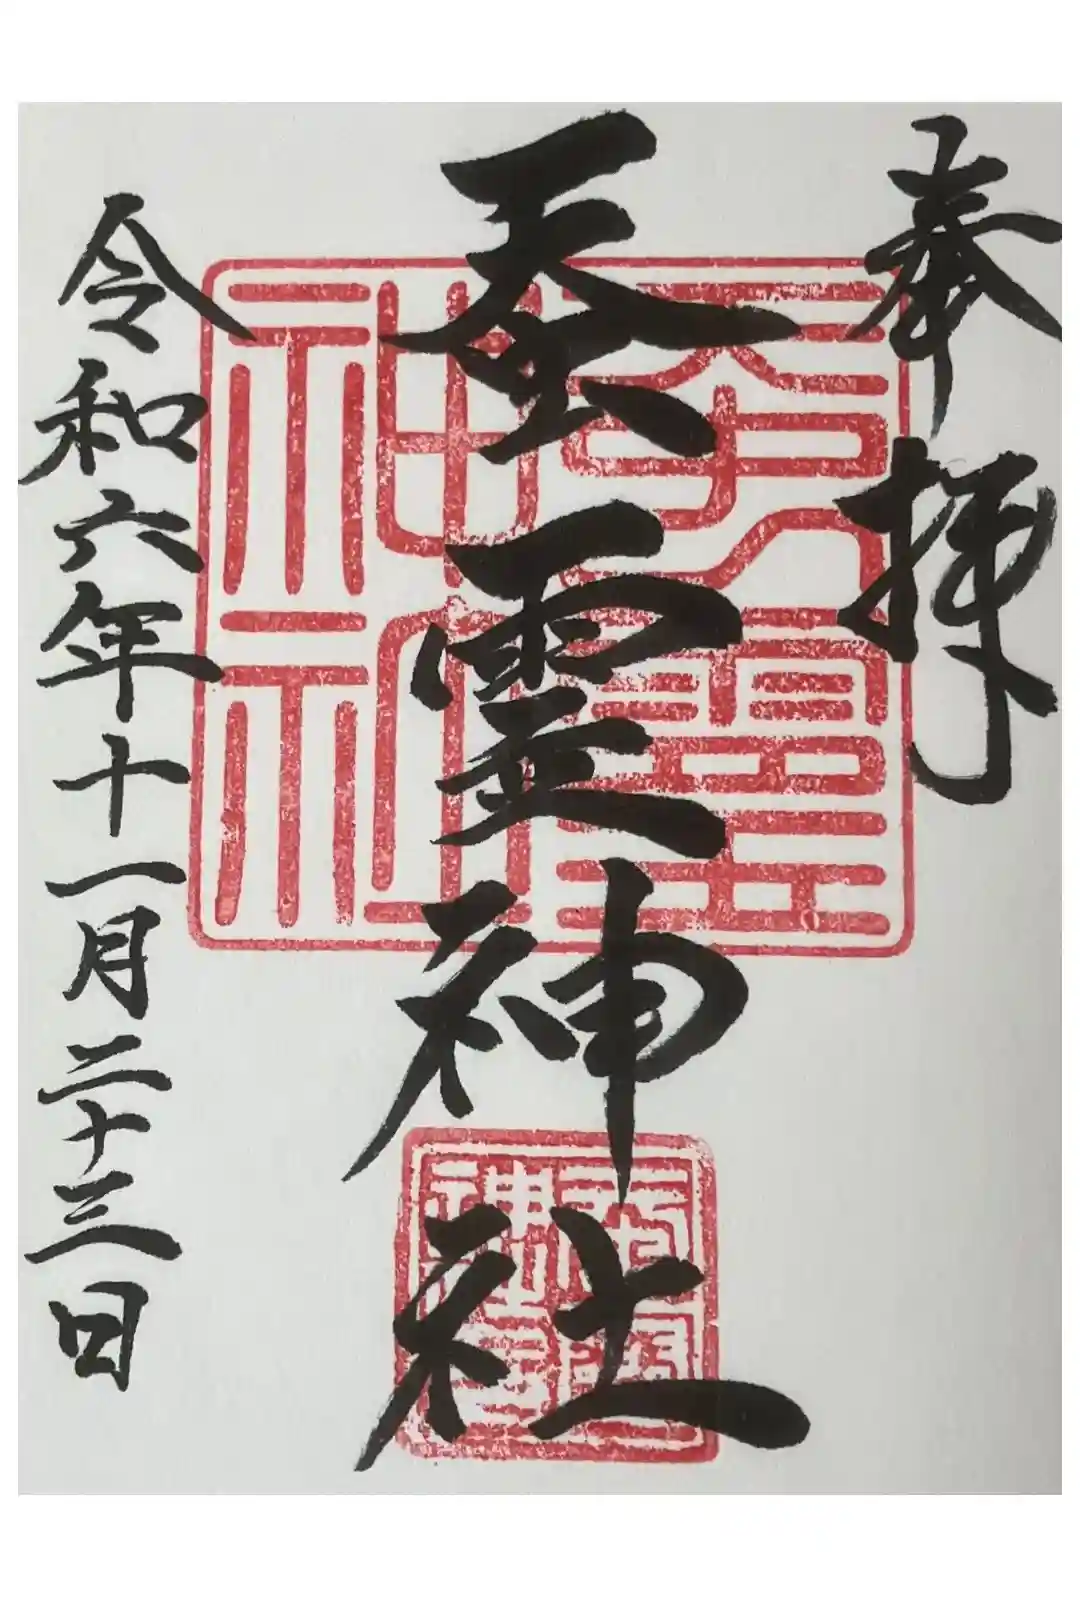 奉拝
蚕霊神社
令和六年十一月二十三日